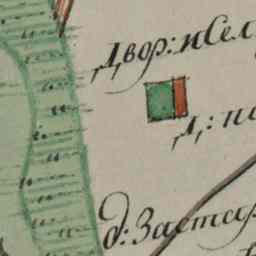 Двор: и Сел
Д: по
д: Застар